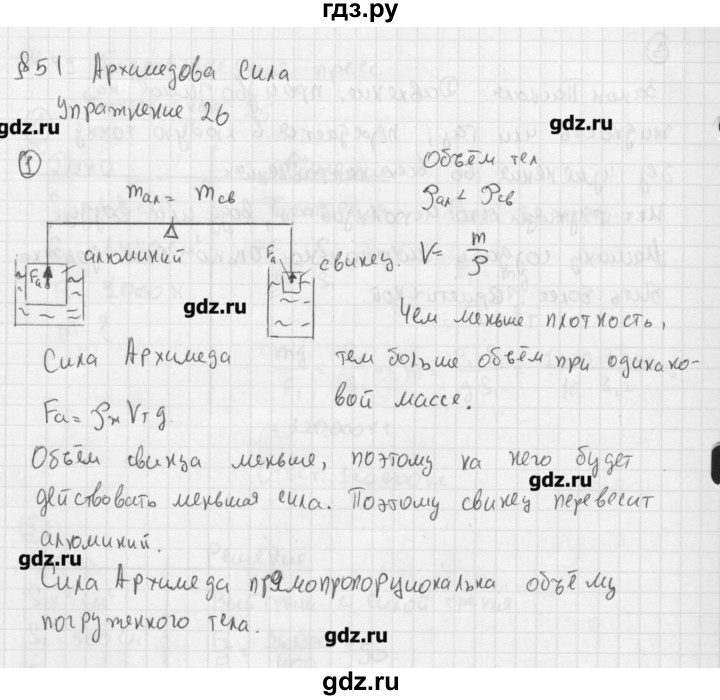 гдз.ру
§51 Архимедова Сила
Упражнение 26
gdz.ru
gdz.ru
①
Объём тел
mал = mсв
ρал < ρсв
алюминий
Fа
Fа
свинец.
V = m/ρ
gdz.ru
Чем меньше плотность,
Сила Архимеда
тем больше объём при одинако-
вой массе.
Fа = ρж Vт g.
Объём свинца меньше, поэтому на него будет
gdz.ru
действовать меньшая сила. Поэтому свинец перевесит
алюминий.
gdz.ru
Сила Архимеда прямопропорциональна объёму
погруженного тела.
gdz.ru
gdz.ru